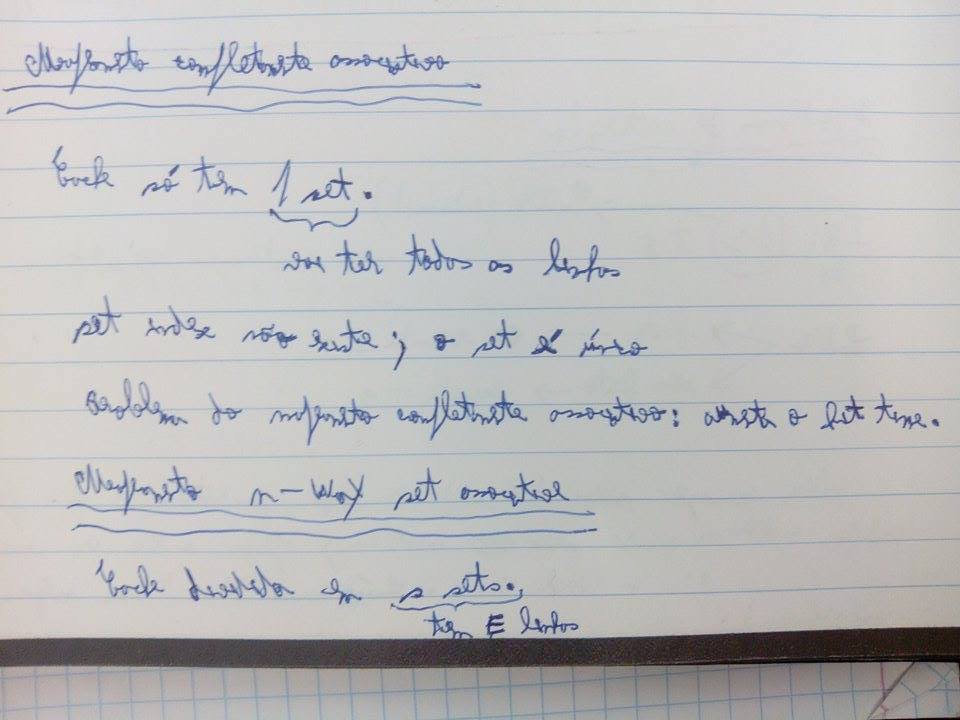 Mapeamento completamente associativo
Cache só tem 1 set.
vai ter todas as linhas
set index não existe; o set é único
Problema do mapeamento completamente associativo: aumenta o hit time.
Mapeamento n-way set associative
Cache dividida em s sets.
tem E linhas